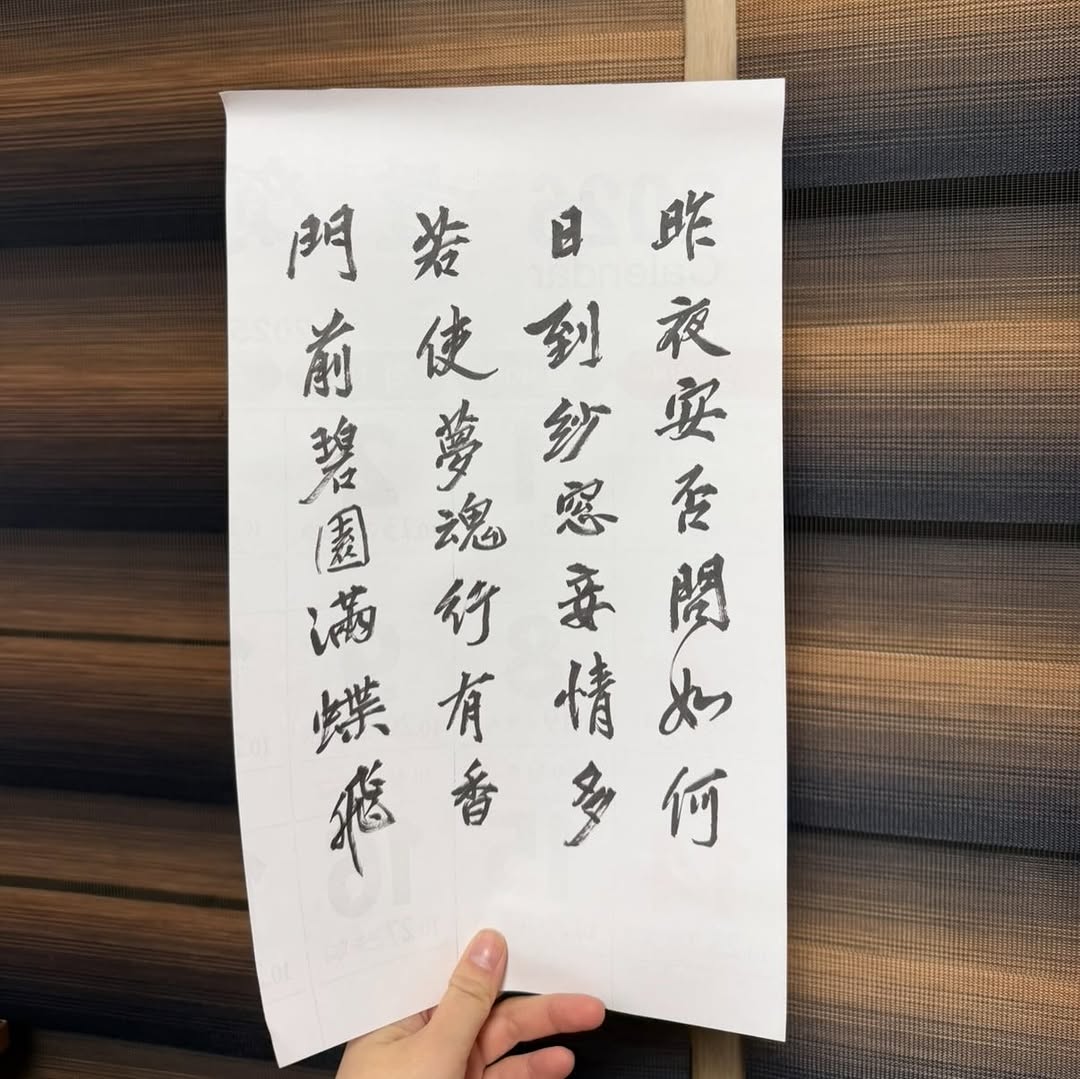 昨夜安否問如何
日到紗窓妾情多
若使夢魂行有香
門前碧園滿蝶飛